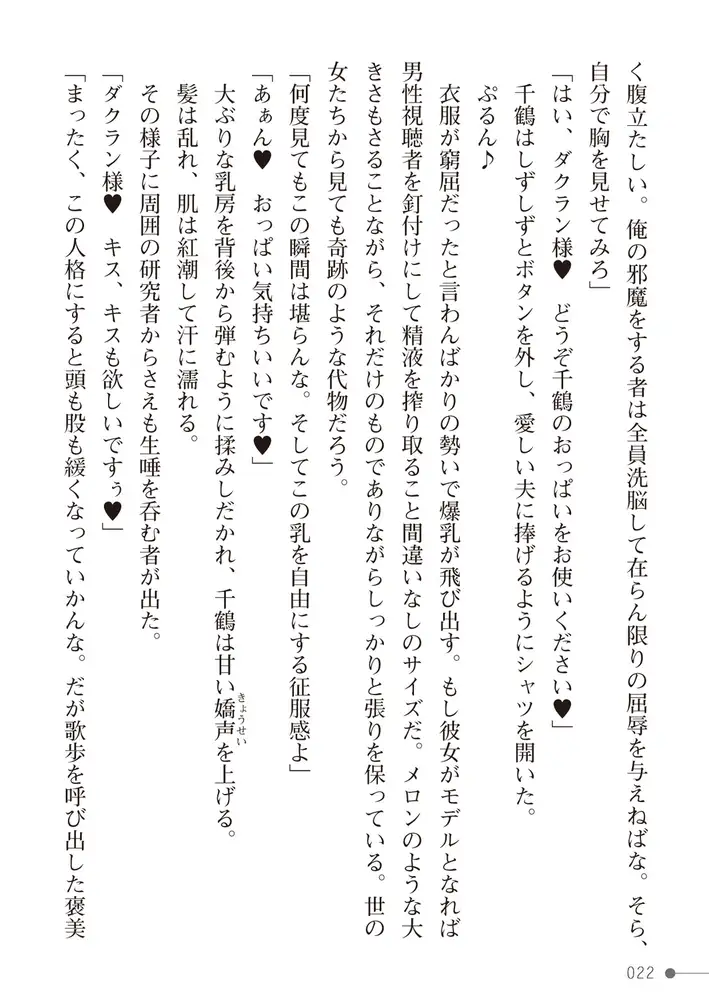 く腹立たしい。俺の邪魔をする者は全員洗脳して在らん限りの屈辱を与えねばな。そら、
自分で胸を見せてみろ」
「はい、ダクラン様♥　どうぞ千鶴のおっぱいをお使いください♥」
千鶴はしずしずとボタンを外し、愛しい夫に捧げるようにシャツを開いた。
ぷるん♪
衣服が窮屈だったと言わんばかりの勢いで爆乳が飛び出す。もし彼女がモデルとなれば
男性視聴者を釘付けにして精液を搾り取ること間違いなしのサイズだ。メロンのような大
きさもさることながら、それだけのものでありながらしっかりと張りを保っている。世の
女たちから見ても奇跡のような代物だろう。
「何度見てもこの瞬間は堪らんな。そしてこの乳を自由にする征服感よ」
「あぁん♥　おっぱい気持ちいいです♥」
大ぶりな乳房を背後から弾むように揉みしだかれ、千鶴は甘い嬌声を上げる。
きょうせい
髪は乱れ、肌は紅潮して汗に濡れる。
その様子に周囲の研究者からさえも生唾を呑む者が出た。
「ダクラン様♥　キス、キスも欲しいですぅ♥」
「まったく、この人格にすると頭も股も緩くなっていかんな。だが歌歩を呼び出した褒美
022